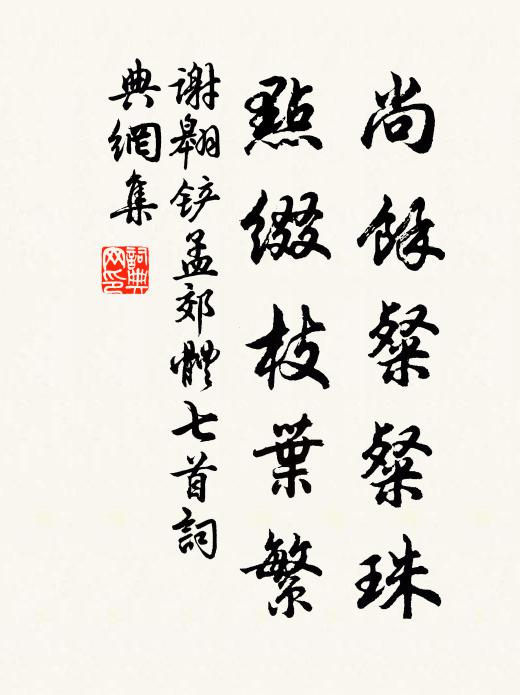 尚餘粲粲珠
點綴枝葉繁
謝翱铲孟郊體七首詞
典網集
詞典網印